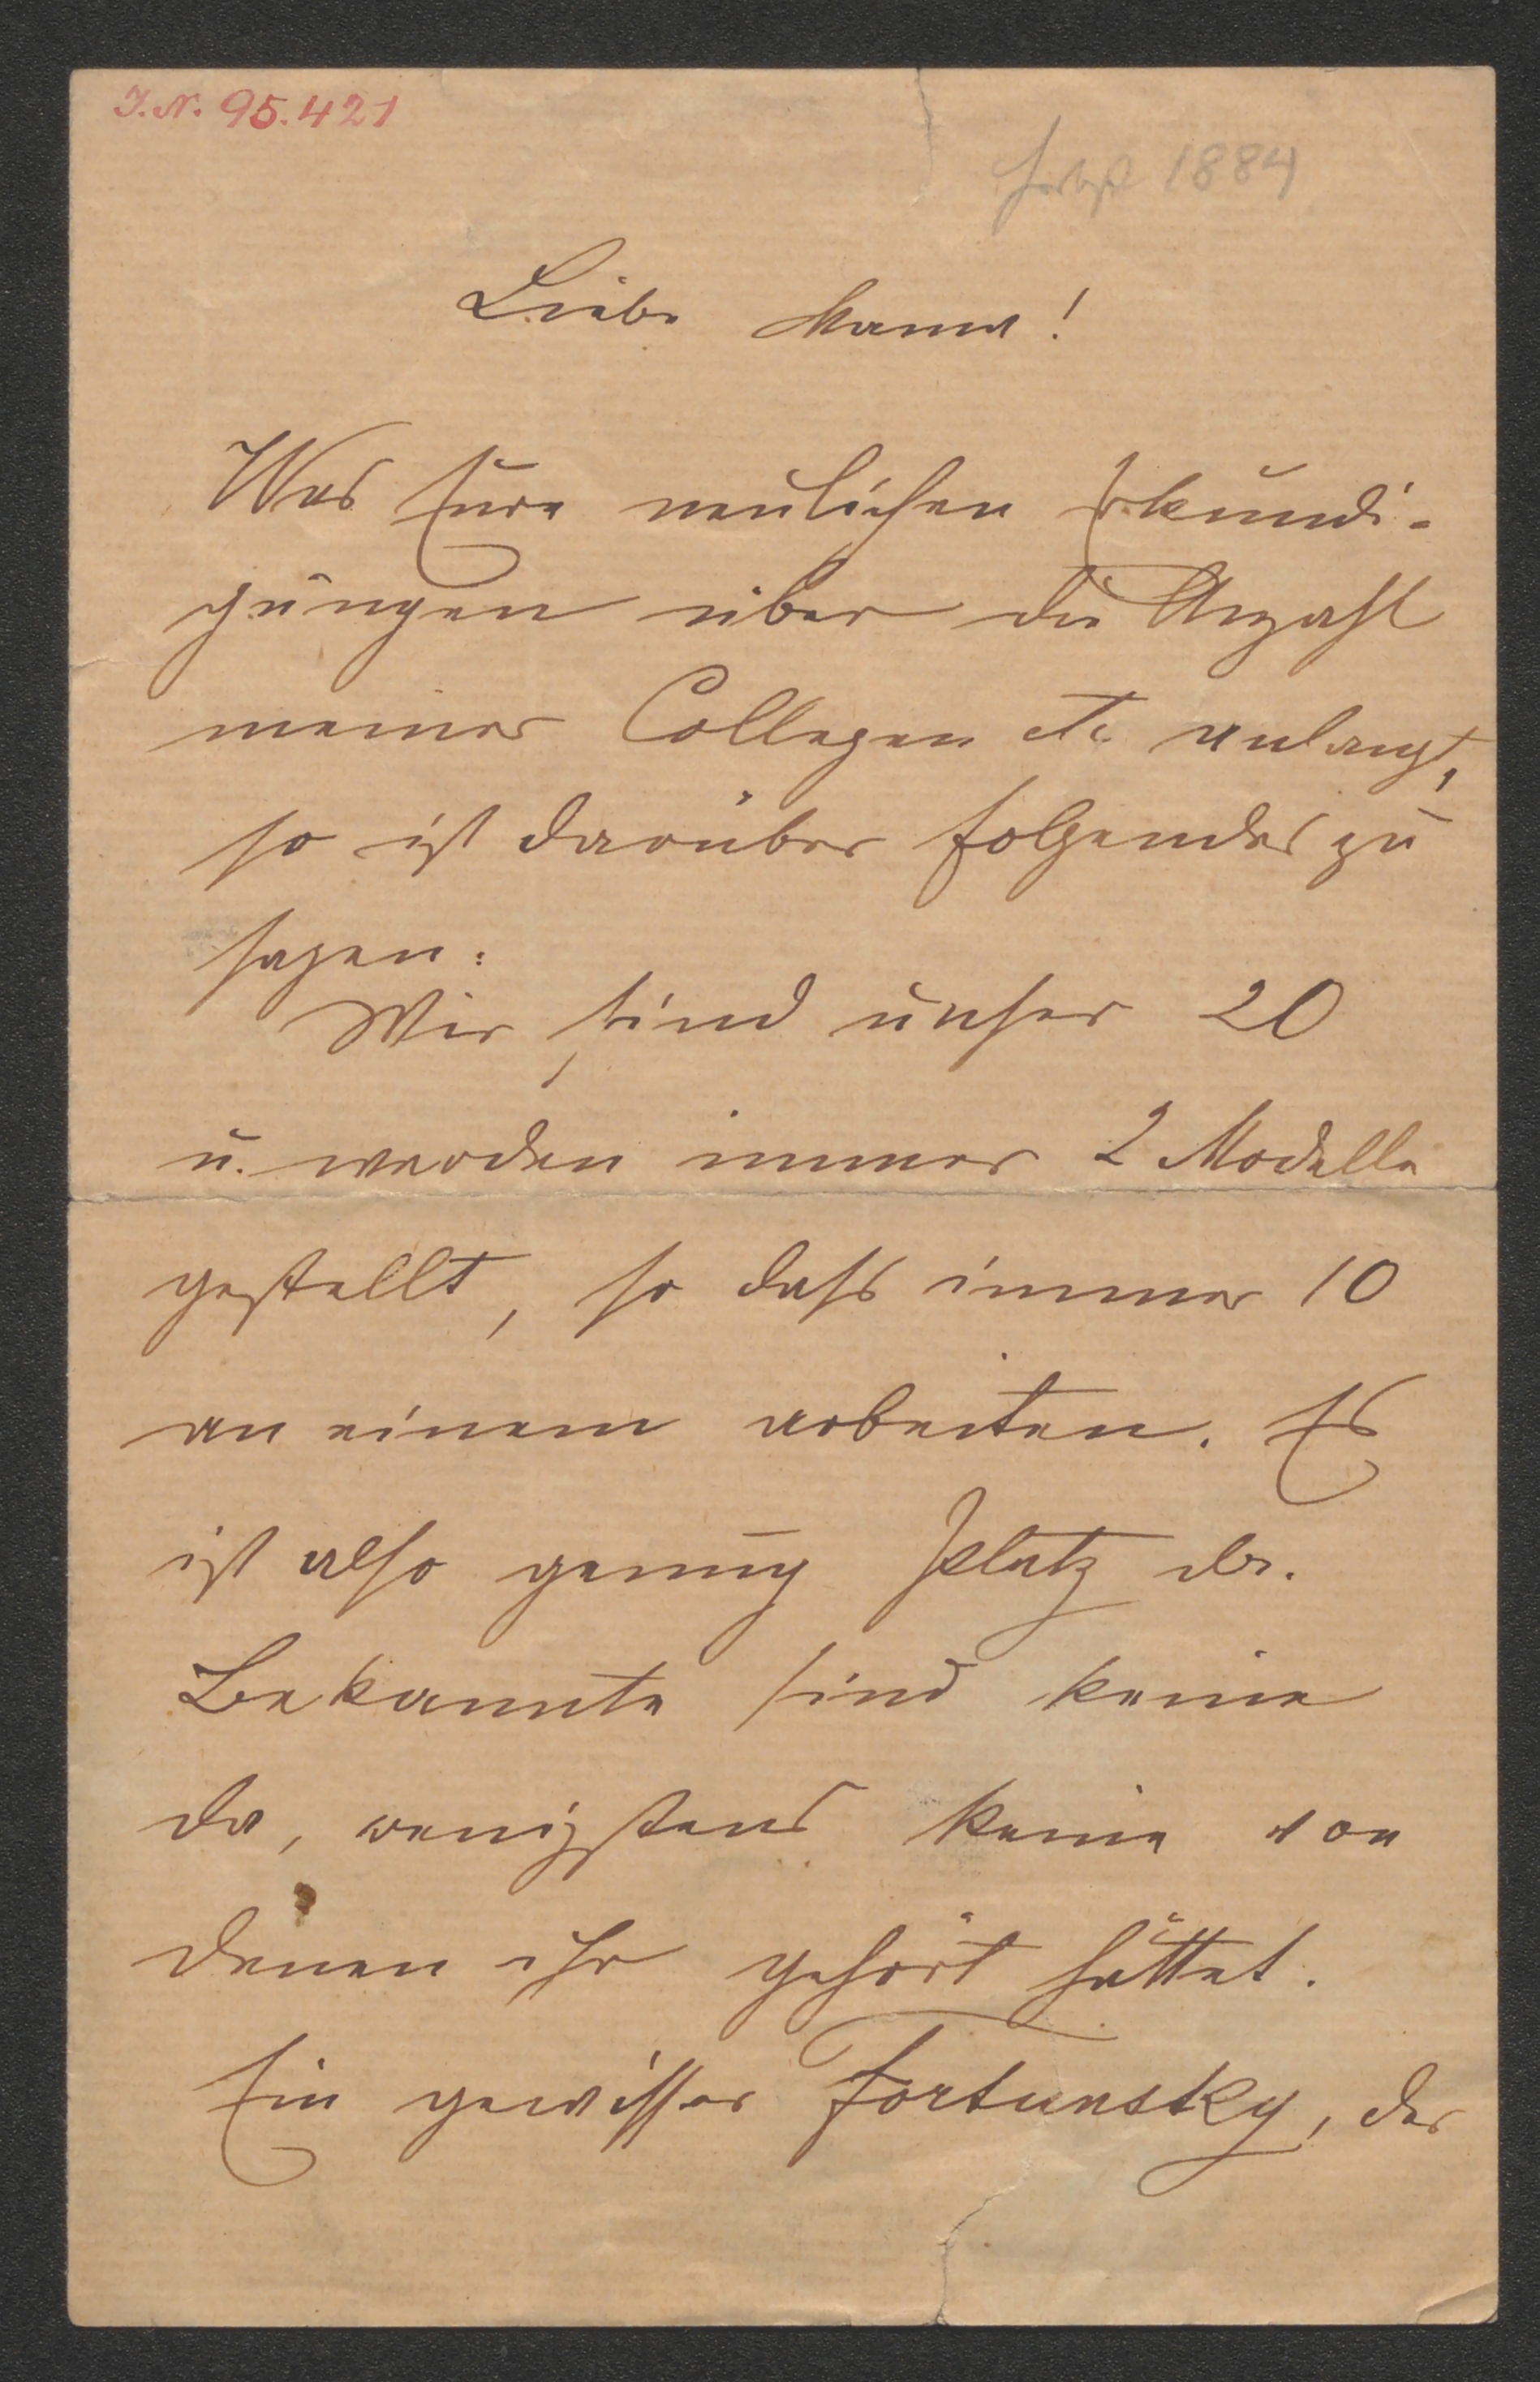 J.N. 95.421
Herbst 1884
Liebe Mama!
Was Eure neulichen Erkundi-
gungen über die Anzahl
meiner Collegen etc. anlangt,
so ist darüber folgendes zu
sagen:
Wir sind unser 20
u. werden immer 2 Modelle
gestellt, so dass immer 10
an einem arbeiten. Es
ist also genug Platz da.
Bekannte sind keine
da, wenigstens keine von
denen ihr gehört hättet.
Ein gewisser Fortunsky, der